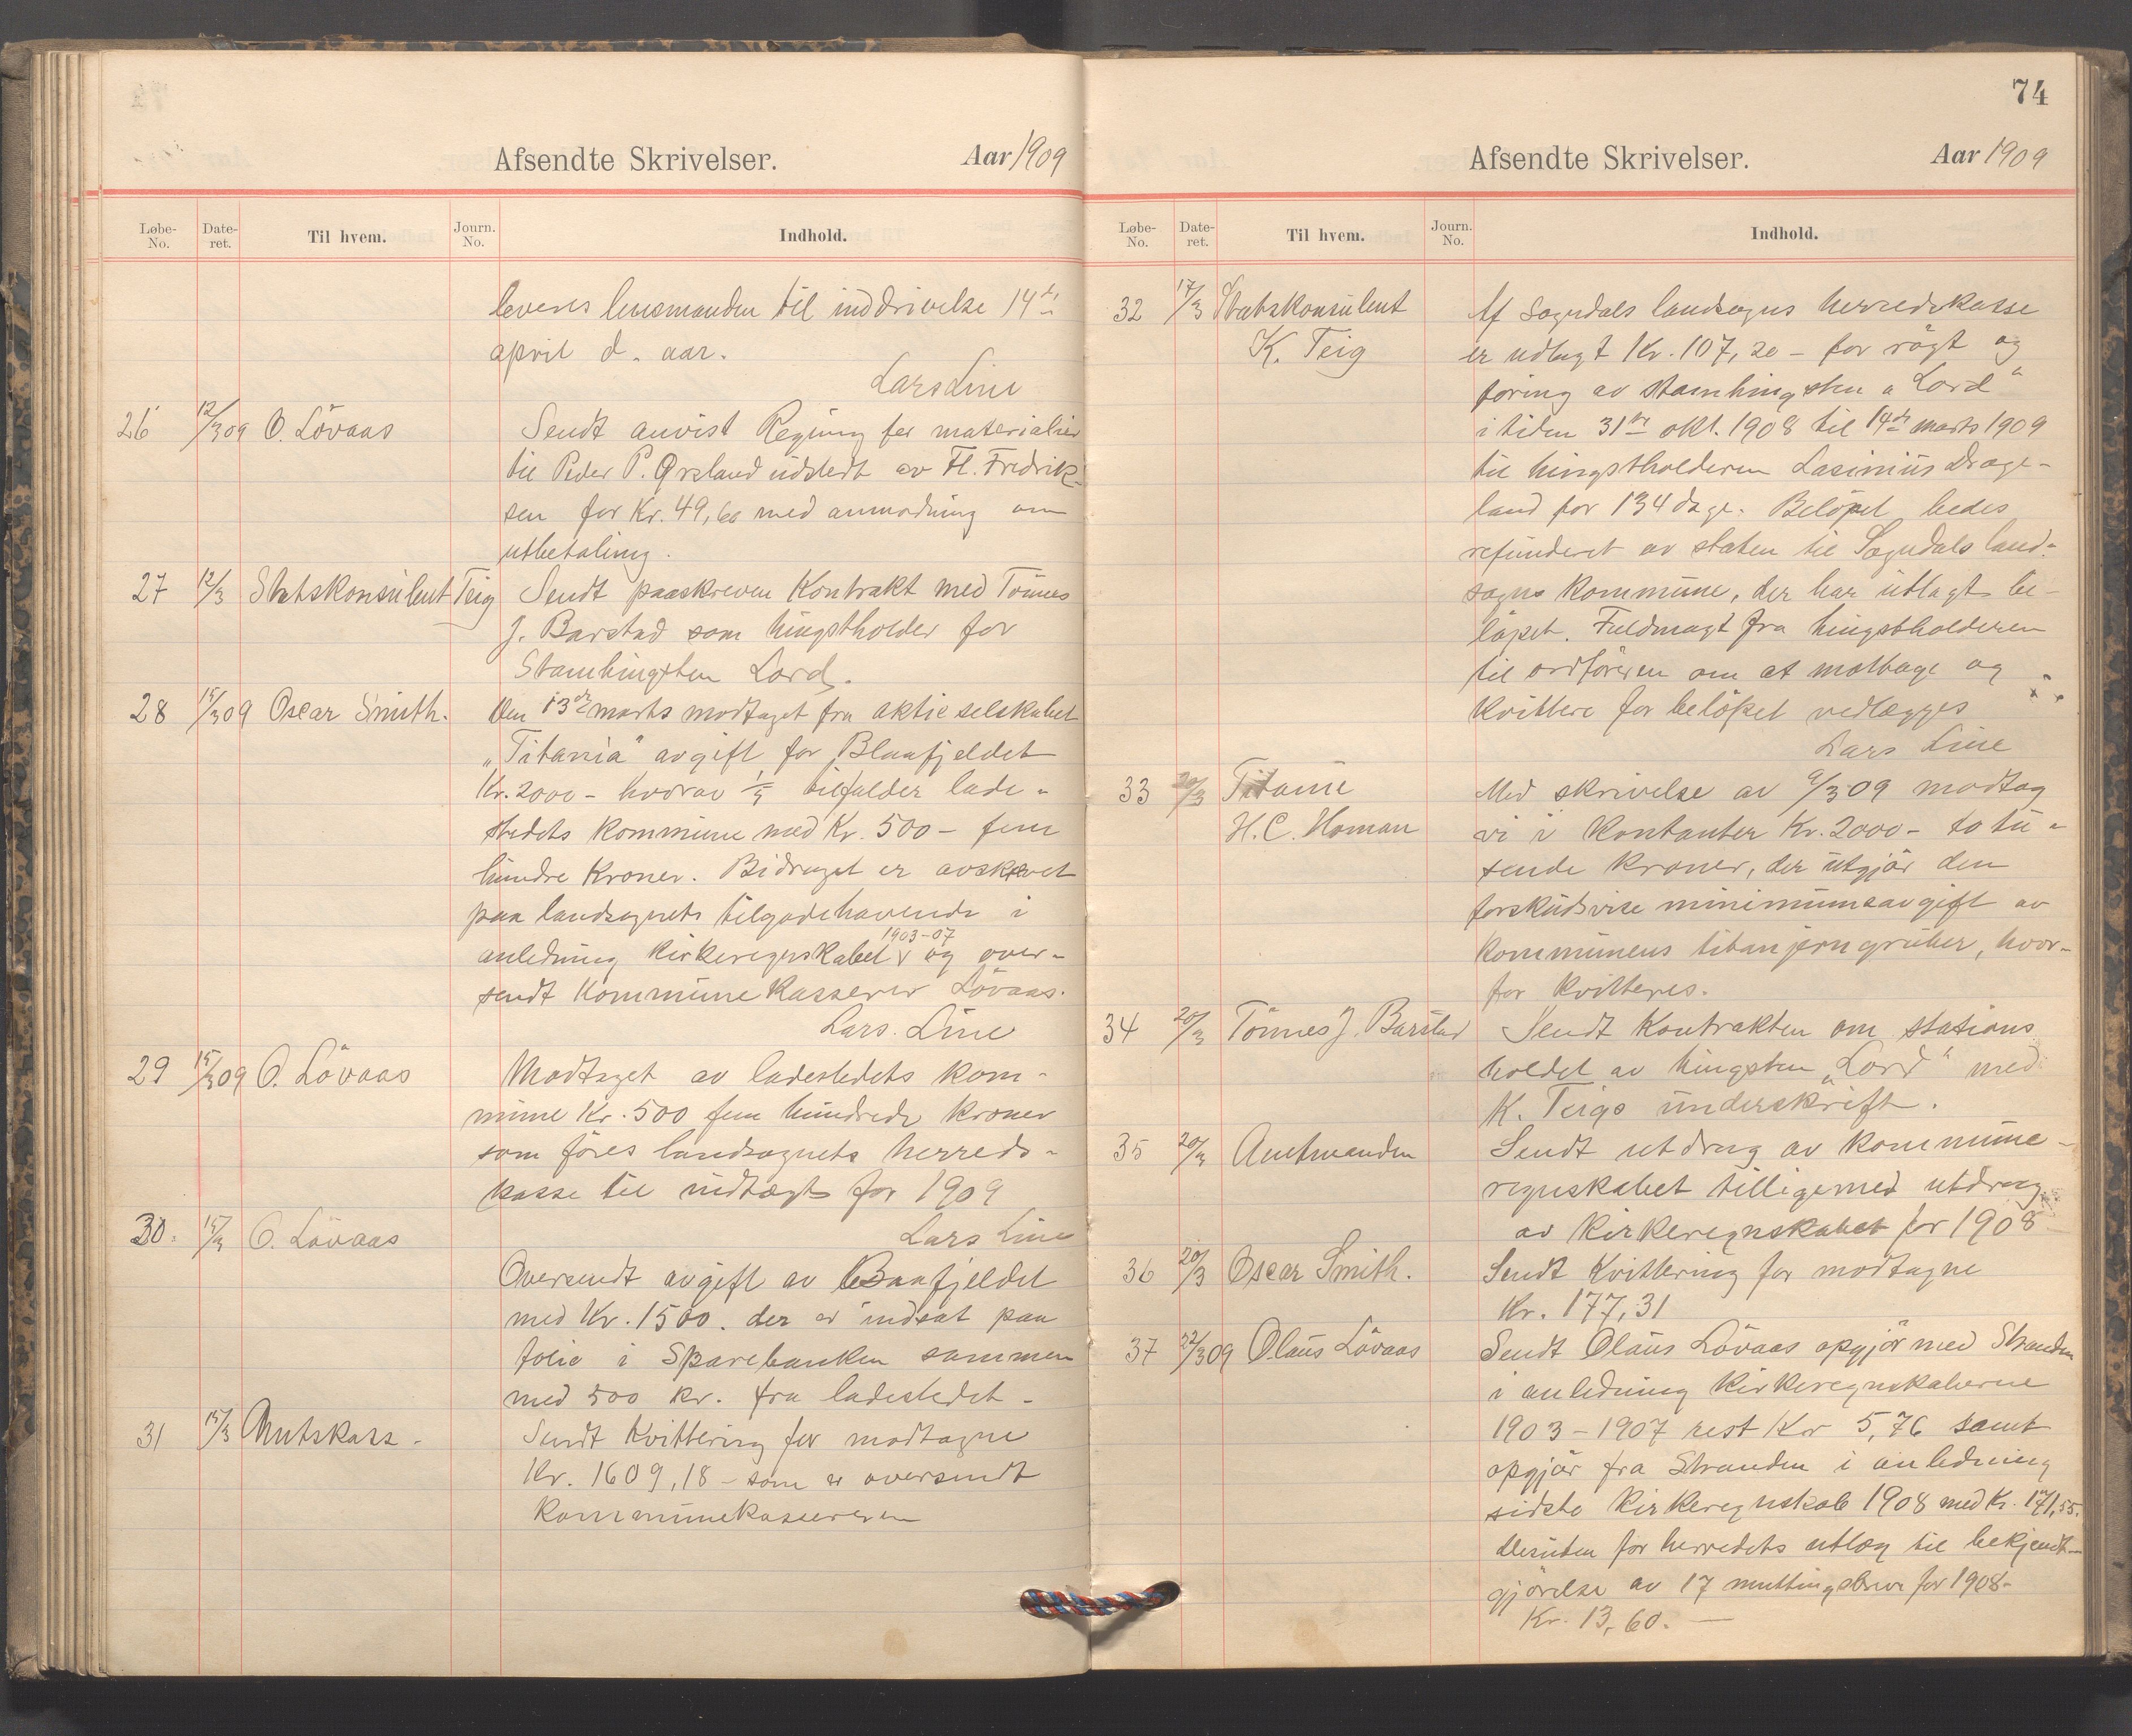 Afsendte Skrivelser. Aar 1909
Løbe-No. Date-ret. Til hvem. Journ. No. Indhold.
leveres lensmanden til inddrivelse 14de
april d. aar.
Lars Line
26 12/3 09 O. Lövaas Sendt anvist Regning for materialier
til Peder P. Ørsland utstedt av Fl. Fredrik-
sen for Kr. 49,60 med anmodning om
utbetaling.
27 12/3 Statskonsulent Teig Sendt paaskreven Kontrakt med Tönnes
J. Barstad som hingstholder for
Stamhingsten Lord.
28 15/3 09 Oscar Smith. Den 13de marts modtaget fra aktieselskabet
„Titania" avgift for Blaafjeldet
Kr. 2000 - hvorav tilfalder lade-
stedets kommune med Kr. 500 - fem
hundre Kroner. Bidraget er avskrevet
paa landsognets tilgodehavende i
anledning Kirkeregnskabet 1903-07 og over-
sendt Kommunekasserer Lövaas.
Lars Line
29 15/3 09 O. Lövaas Modtaget av ladestedets kom-
mune Kr. 500 fem hundrede kroner
som föres landsognets herreds-
kasse til indtægt for 1909
Lars Line
30. 15/3 O. Lövaas
Oversendt avgift av Blaafjeldet
med Kr. 1500. der er indsat paa
folio i Sparebanken sammen
med 500 kr. fra ladestedet.
31 15/3 Amtskass. Sendt Kvittering for modtagne
Kr. 1609,18 - som er oversendt
Kommunekassereren
74
Afsendte Skrivelser. Aar 1909
Løbe-No. Date-ret. Til hvem. Journ. No. Indhold.
32 17/3 Statskonsulent Af Sogndals landsogns herredskasse
K. Teig er udlagt Kr. 107,20 - for rögt og
foring av stamhingsten „Lord"
i tiden 31te okt. 1908 til 14de marts 1909
til hingstholderen Lasinius Drage-
land for 134 dage. Belöpet bedes
refunderet av staten til Sogndals land-
sogns kommune, der har utlagt be-
löpet. Fuldmagt fra hingstholderen
til ordföreren om at motta og
kvittere for belöpet vedlægges
Lars Line
33 20/3 Titania Med skrivelse av 9/3 09 modtog
H. C. Homan vi i kontanter Kr. 2000 - to tu-
sende kroner, der utgjör den
forskudsvise minimumsavgift av
kommunens titanjerngruber, hvor-
for kvitteres.
34 20/3 Tönnes J. Barstad Sendt Kontrakten om stations
holdet av hingsten „Lord" med
K. Teigs underskrift.
35 20/3 Amtmanden Sendt utdrag av kommune-
regnskabet tilligemed utdrag
av Kirkeregnskabet for 1908
36 20/3 Oscar Smith. Sendt Kvittering for modtagne
Kr. 177,31
37 22/3 09 Olaus Lövaas Sendt Olaus Lövaas opgjör med Stranden
i anledning Kirkeregnskaberne
1903-1907 rest Kr 5,76 samt
opgjör fra Stranden i anledning
sidste Kirkeregnskab 1908 med Kr. 171,55.
desuten for herredets utlæg til bekjendt-
gjörelse av 17 muttingsbreve for 1908-
Kr. 13,60. —